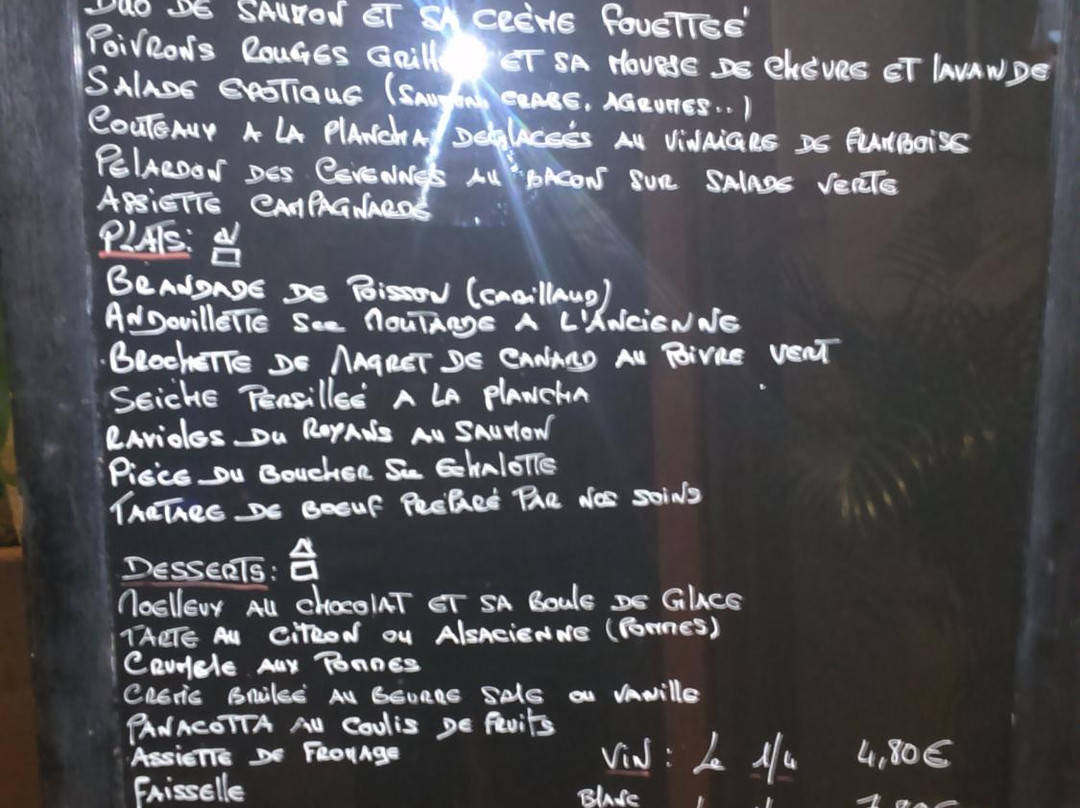 DUO DE SAUMON ET SA CRÈME FOUETTEÉ
POIVRONS ROUGES GRILL ET SA MOUSSE DE CHÈVRE ET LAVANDE
SALADE EXOTIQUE (SAUMON, CRABE, AGRUMES..)
COUTEAUX A LA PLANCHA DEGLACEÉS AU VINAIGRE DE FRAMBOISE
PELARDON DES CEVENNES AU BACON SUR SALADE VERTE
ASSIETTE CAMPAGNARDE
PLATS:
BRANDADE DE POISSON (CABILLAUD)
ANDOUILLETTE SCE MOUTARDE A L'ANCIENNE
BROCHETTE DE MAGRET DE CANARD AU POIVRE VERT
SEICHE PERSILLEÉ A LA PLANCHA
RAVIOLES DU ROYANS AU SAUMON
PIÈCE DU BOUCHER SCE ECHALOTTE
TARTARE DE BOEUF PREPARÉ PAR NOS SOINS
DESSERTS:
MOELLEUX AU CHOCOLAT ET SA BOULE DE GLACE
TARTE AU CITRON OU ALSACIENNE (POMMES)
CRUMBLE AUX POMMES
CREME BRULEÉ AU BEURRE SALE OU VANILLE
PANACOTTA AU COULIS DE FRUITS
ASSIETTE DE FROMAGE
VIN: Le 1/4 4,80€
FAISSELLE
BLANC